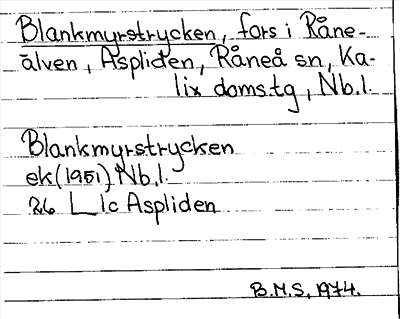 Blankmyrstrycken, fors i Råne-
älven, Aspliden, Råneå sn, Ka-
lix doms.tg, Nb.l.
Blankmyrstrycken
ek (1951) Nb.l.
26 L 1c Aspliden
B.M.S. 1974.